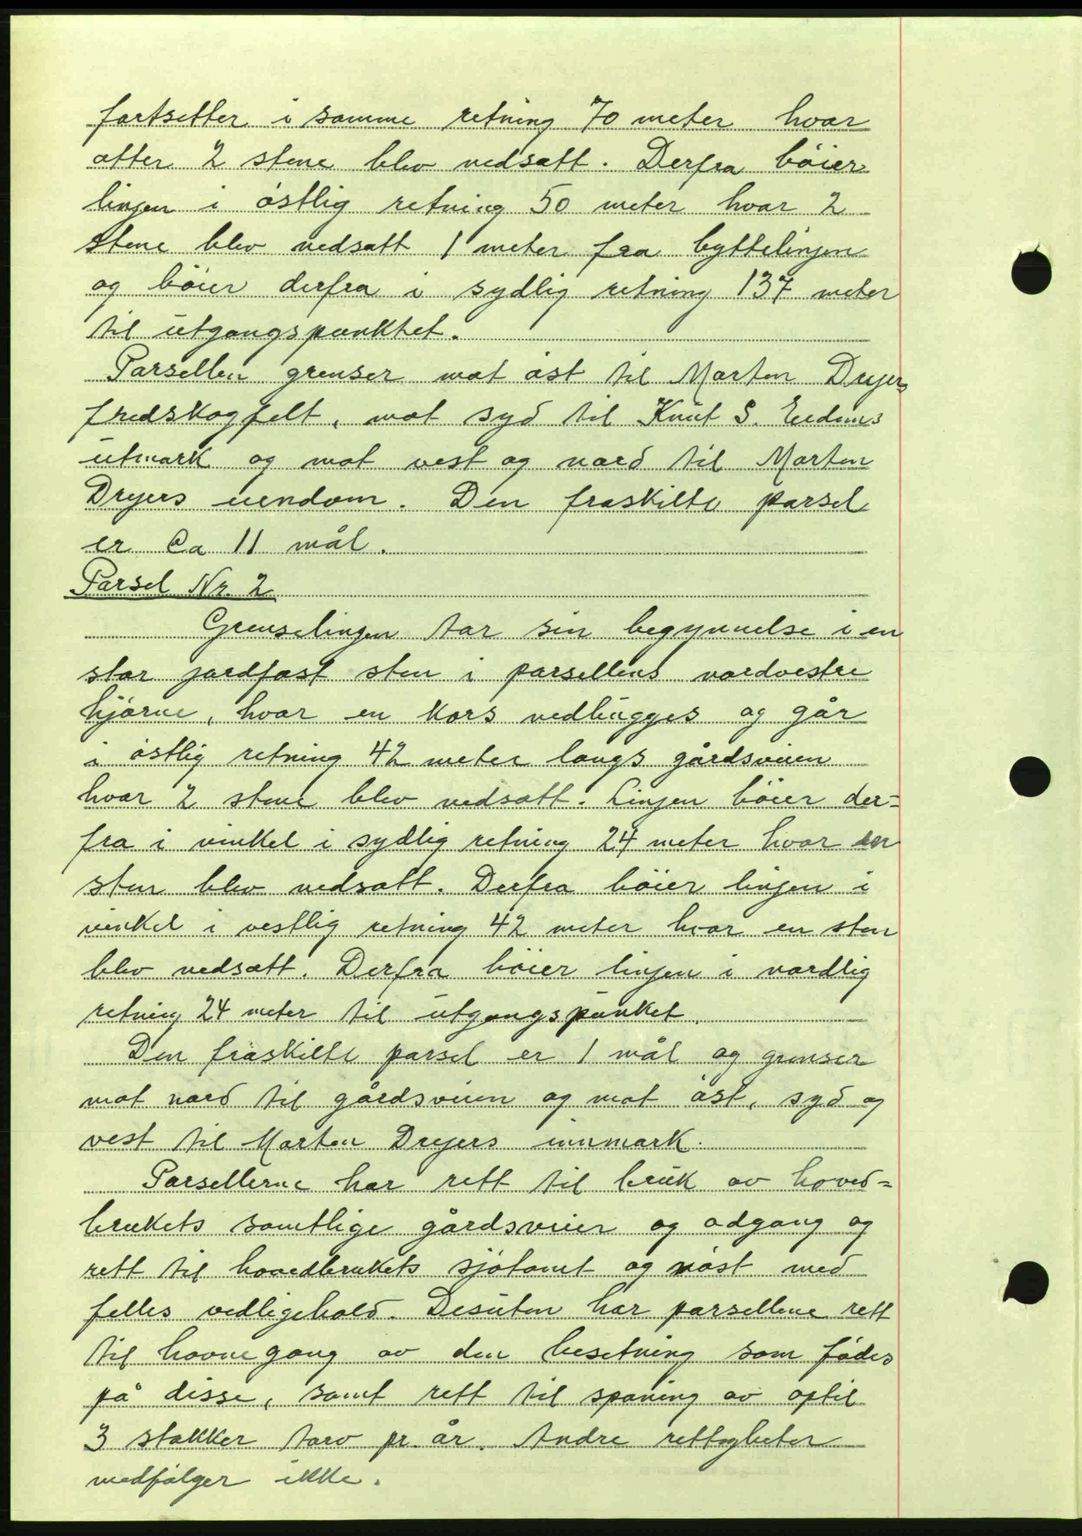 fortsetter i samme retning 70 meter hvor
atter 2 stene blev nedsatt. Derfra böier
linjen i östlig retning 50 meter hvor 2
stene blev nedsatt 1 meter fra byttelinjen
og böier derfra i sydlig retning 137 meter
til utgangspunktet.
Parsellen grenser mot öst til Morten Dryers
fredskogfelt, mot syd til Knut S.
utmark og mot vest og nord til Morten
Dryers eiendom. Den fraskilte parsel
er Ca 11 mål.
Parsel Nr. 2
Grenselinjen tar sin begynnelse i en
stor jordfast sten i parsellens nordvestre
hjörne, hvor en kors nedhugges og går
i östlig retning 42 meter langs gårdsveien
hvor 2 stene blev nedsatt. Linjen böier der=
fra i vinkel i sydlig retning 24 meter hvor en
sten blev nedsatt. Derfra böier linjen i
vinkel i vestlig retning 42 meter hvor en sten
blev nedsatt. Derfra böier linjen i nordlig
retning 24 meter til utgangspunket.
Den fraskilte parsel er 1 mål og grenser
mot nord til gårdsveien og mot öst, syd og
vest til Morten Dryers innmark.
Parsellerne har rett til bruk av hoved=
brukets samtlige gårdsveier og adgang og
rett til hovedbrukets sjötomt og nöst med
felles vedligehold. Desuten har parsellene rett
til havnegang av den besetning som födes
på disse, samt rett til spaning av optil
3 stakker torv pr. år. Andre rettigheter
medfölger ikke.